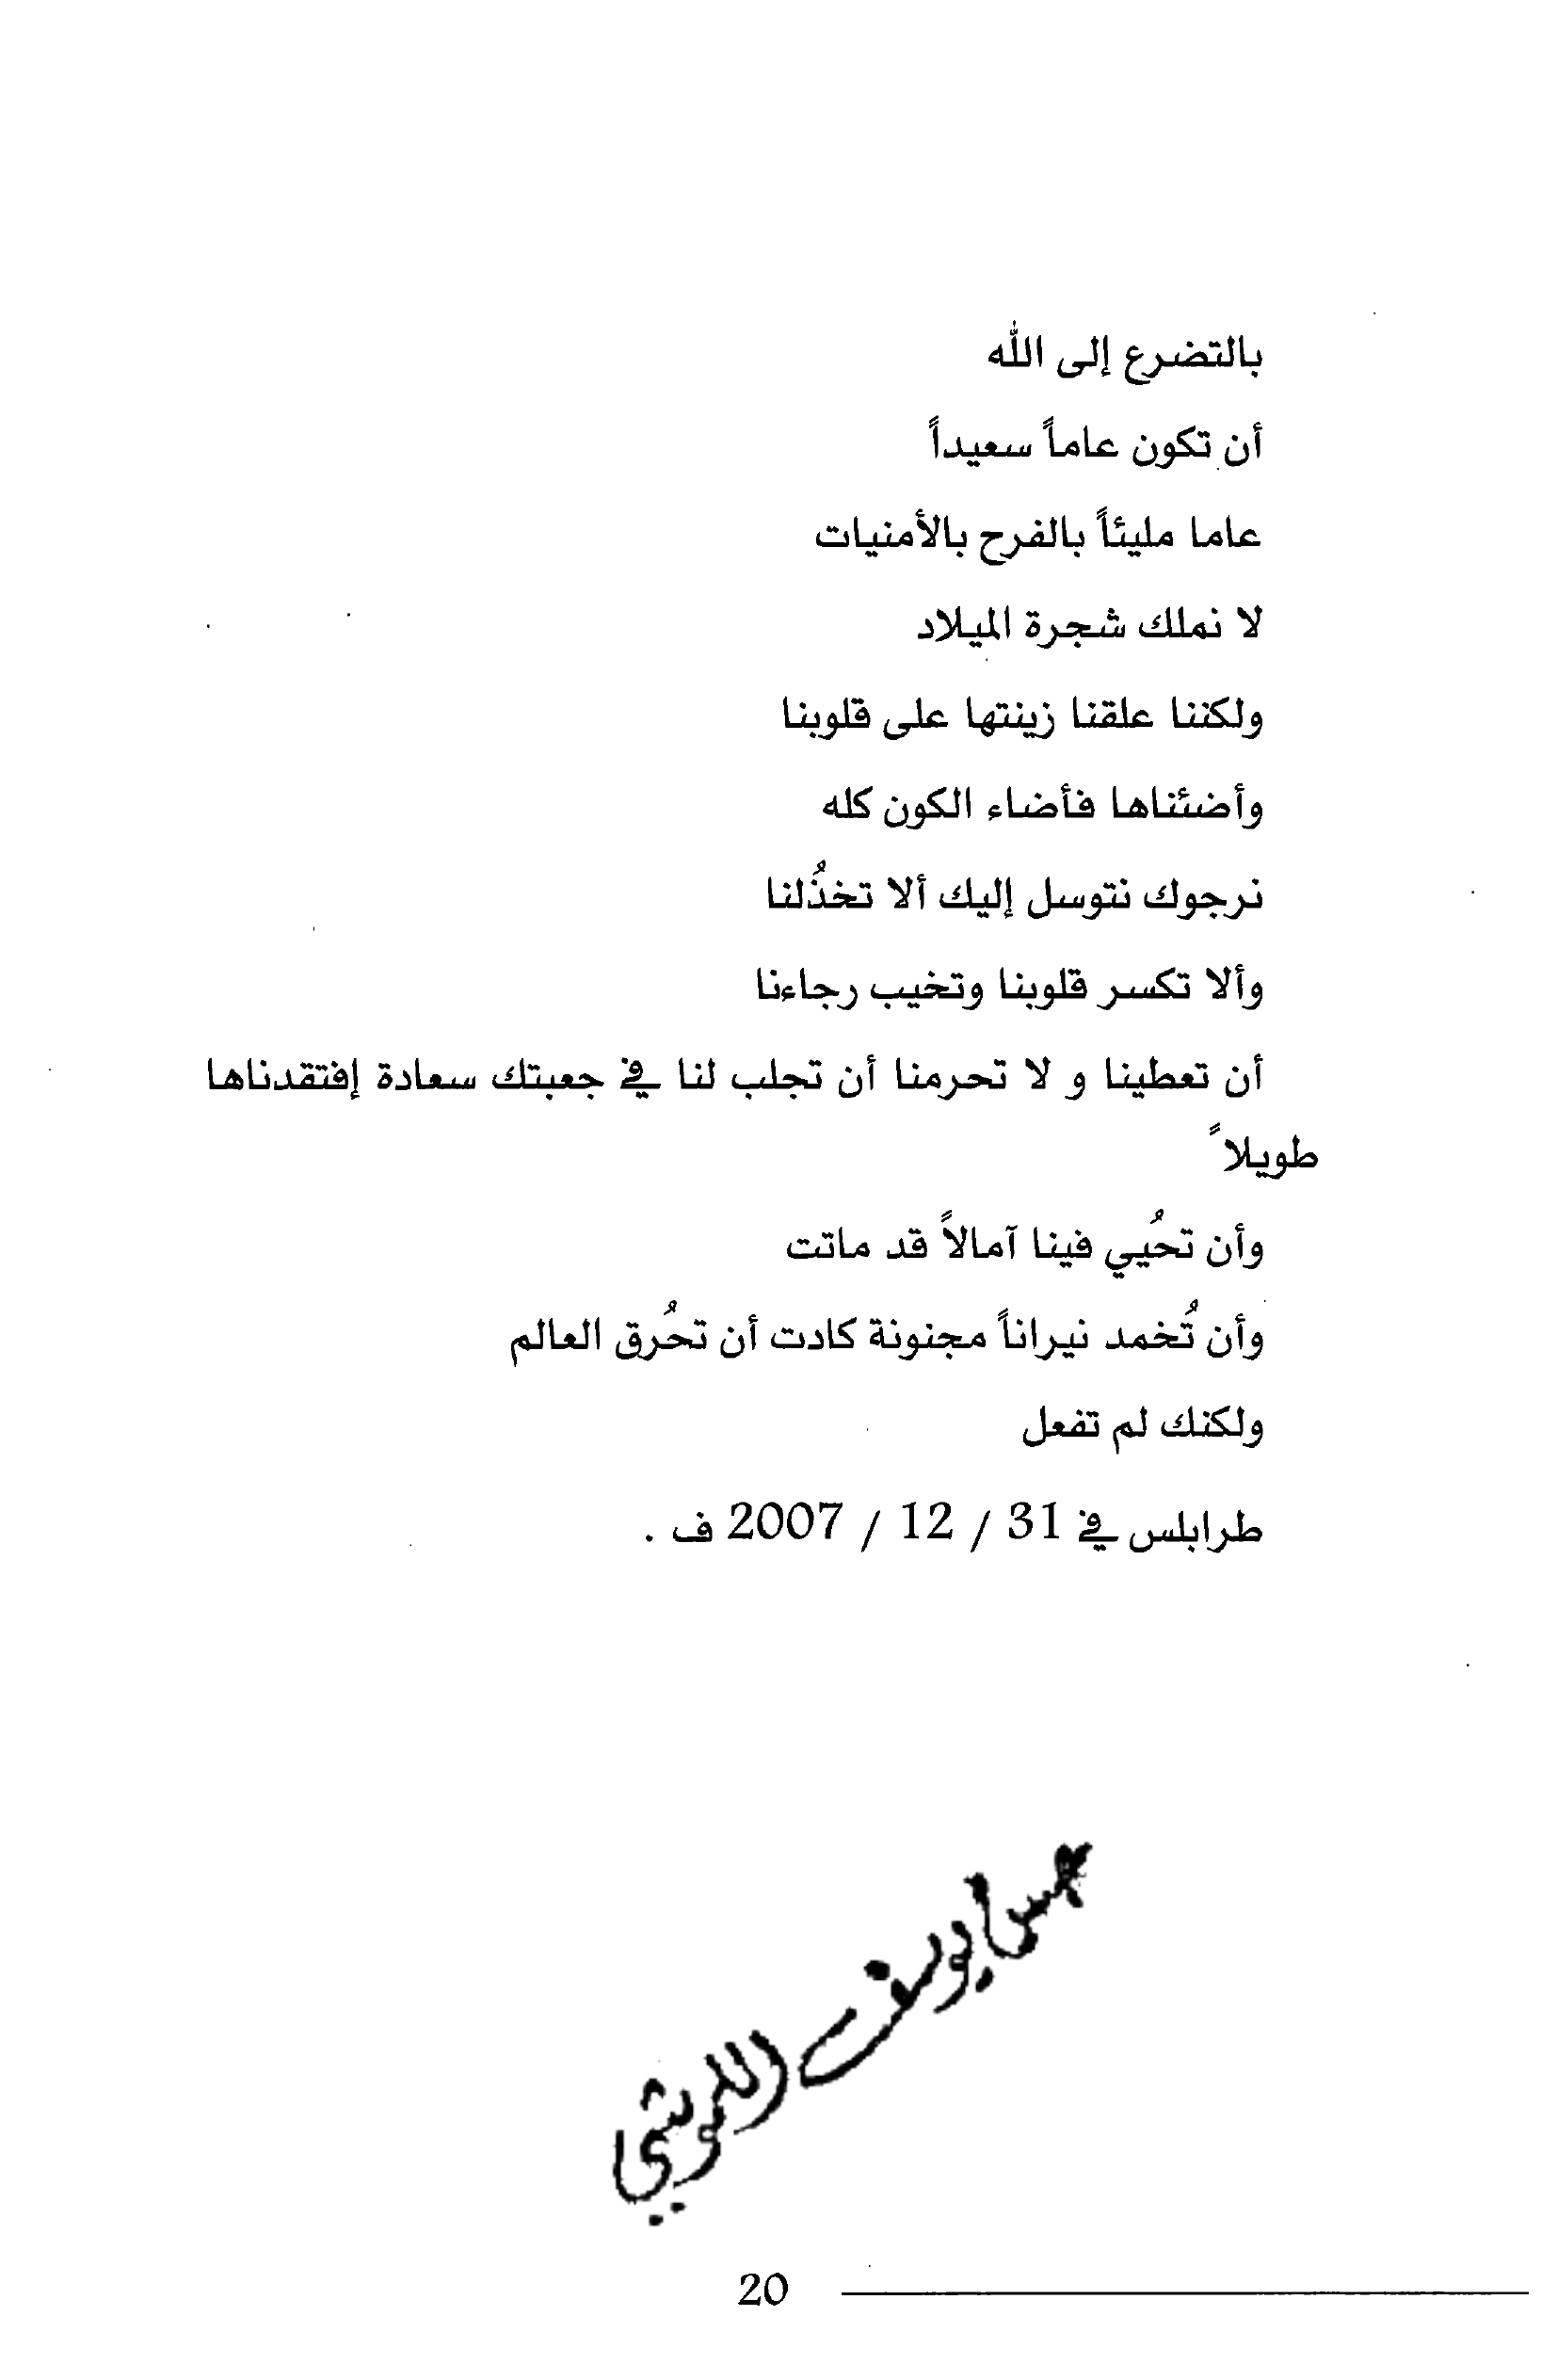 بالتضرع إلى الله
أن تكون عاماً سعيداً
عاما مليئاً بالفرح بالأمنيات
لا نملك شجرة الميلاد
ولكننا علقنا زينتها على قلوبنا
وأضئناها فأضاء الكون كله
نرجوك نتوسل إليك ألا تخذُلنا
وألا تكسر قلوبنا وتخيب رجاءنا
أن تعطينا و لا تحرمنا أن تجلب لنا في جعبتك سعادة إفتقدناها
طويلاً
وأن تحُيي فينا آمالاً قد ماتت
وأن تُخمد نيراناً مجنونة كادت أن تحُرق العالم
ولكنك لم تفعل
طرابلس في 31 / 12 / 2007 ف .
يوسف
20